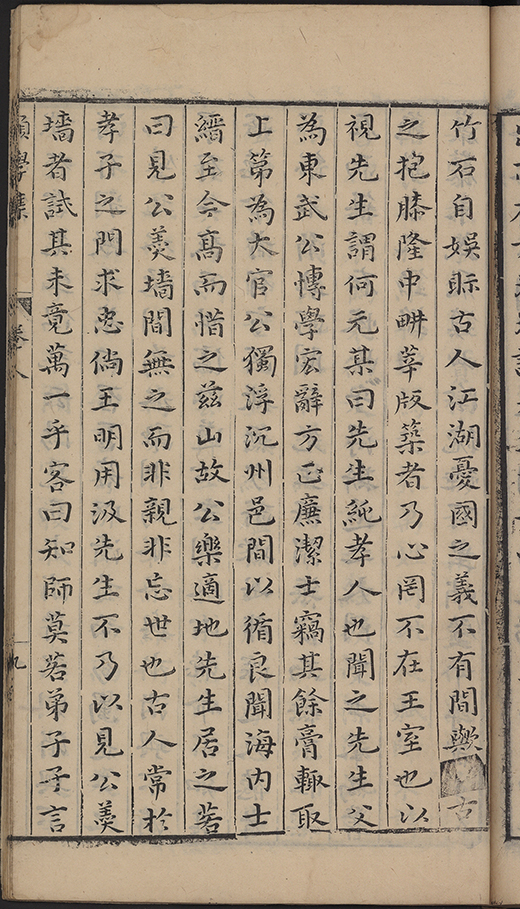 竹石自娛眎古人江湖憂國之義不有間歟古
之抱膝隆中畊莘版築者乃心罔不在王室也以
視先生謂何元某曰先生純孝人也聞之先生父
為東武公慱學宏辭方正廉潔士竊其餘膏輙取
上第為大官公獨浮沉州邑間以循良聞海内士
縉至今高而惜之兹山故公樂適地先生居之若
曰見公羮墻間無之而非親非忘世也古人常於
孝子之門求忠倘王明用汲先生不乃以見公羮
墻者試其未竟萬一乎客曰知師莫若弟子子言
學集
卷八
九